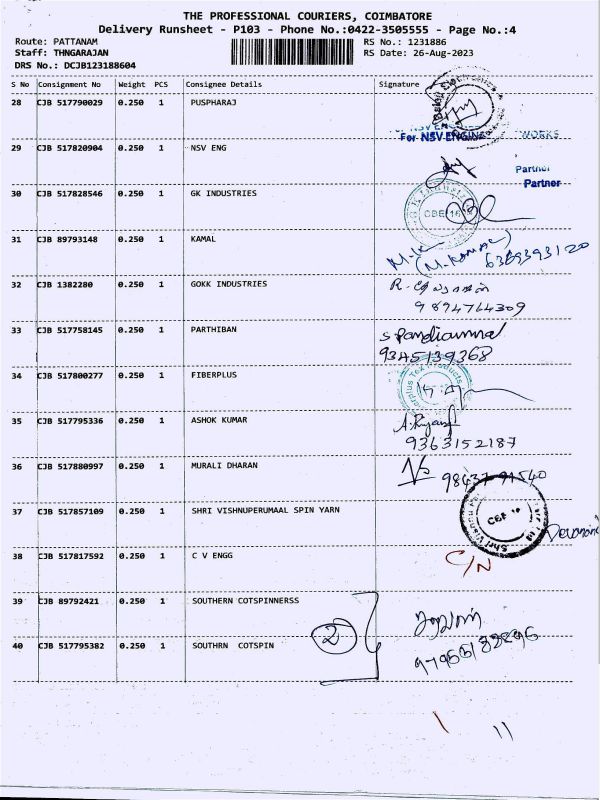 THE PROFESSIONAL COURIERS, COIMBATORE
Delivery Runsheet - P103 - Phone No.:0422-3505555 - Page No.:4
Route: PATTANAM RS No.: 1231886
Staff: THNGARAJAN RS Date: 26-Aug-2023
DRS No.: DCJB123188604
S No Consignment No Weight PCS Consignee Details Signature
28 CJB 517790029 0.250 1 PUSPHARAJ
For NSV ENGINE WORKS
29 CJB 517820904 0.250 1 NSV ENG
Partner
Partner
30 CJB 517828546 0.250 1 GK INDUSTRIES
CBE 16
31 CJB 89793148 0.250 1 KAMAL
(M. KAMAL)
6369393120
32 CJB 1382280 0.250 1 GOKK INDUSTRIES
9894764309
33 CJB 517758145 0.250 1 PARTHIBAN
9345139368
34 CJB 517800277 0.250 1 FIBERPLUS
35 CJB 517795336 0.250 1 ASHOK KUMAR
9363152187
36 CJB 517880997 0.250 1 MURALI DHARAN
98437 91540
37 CJB 517857109 0.250 1 SHRI VISHNUPERUMAAL SPIN YARN
38 CJB 517817592 0.250 1 C V ENGG
C/N
39 CJB 89792421 0.250 1 SOUTHERN COTSPINNERSS
2
40 CJB 517795382 0.250 1 SOUTHRN COTSPIN